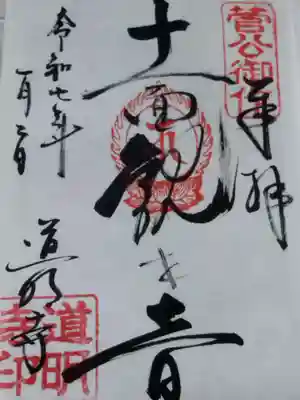 菅公御作
奉拝
十一面観世音
令和七年
一月二日
道明寺
道明
寺印